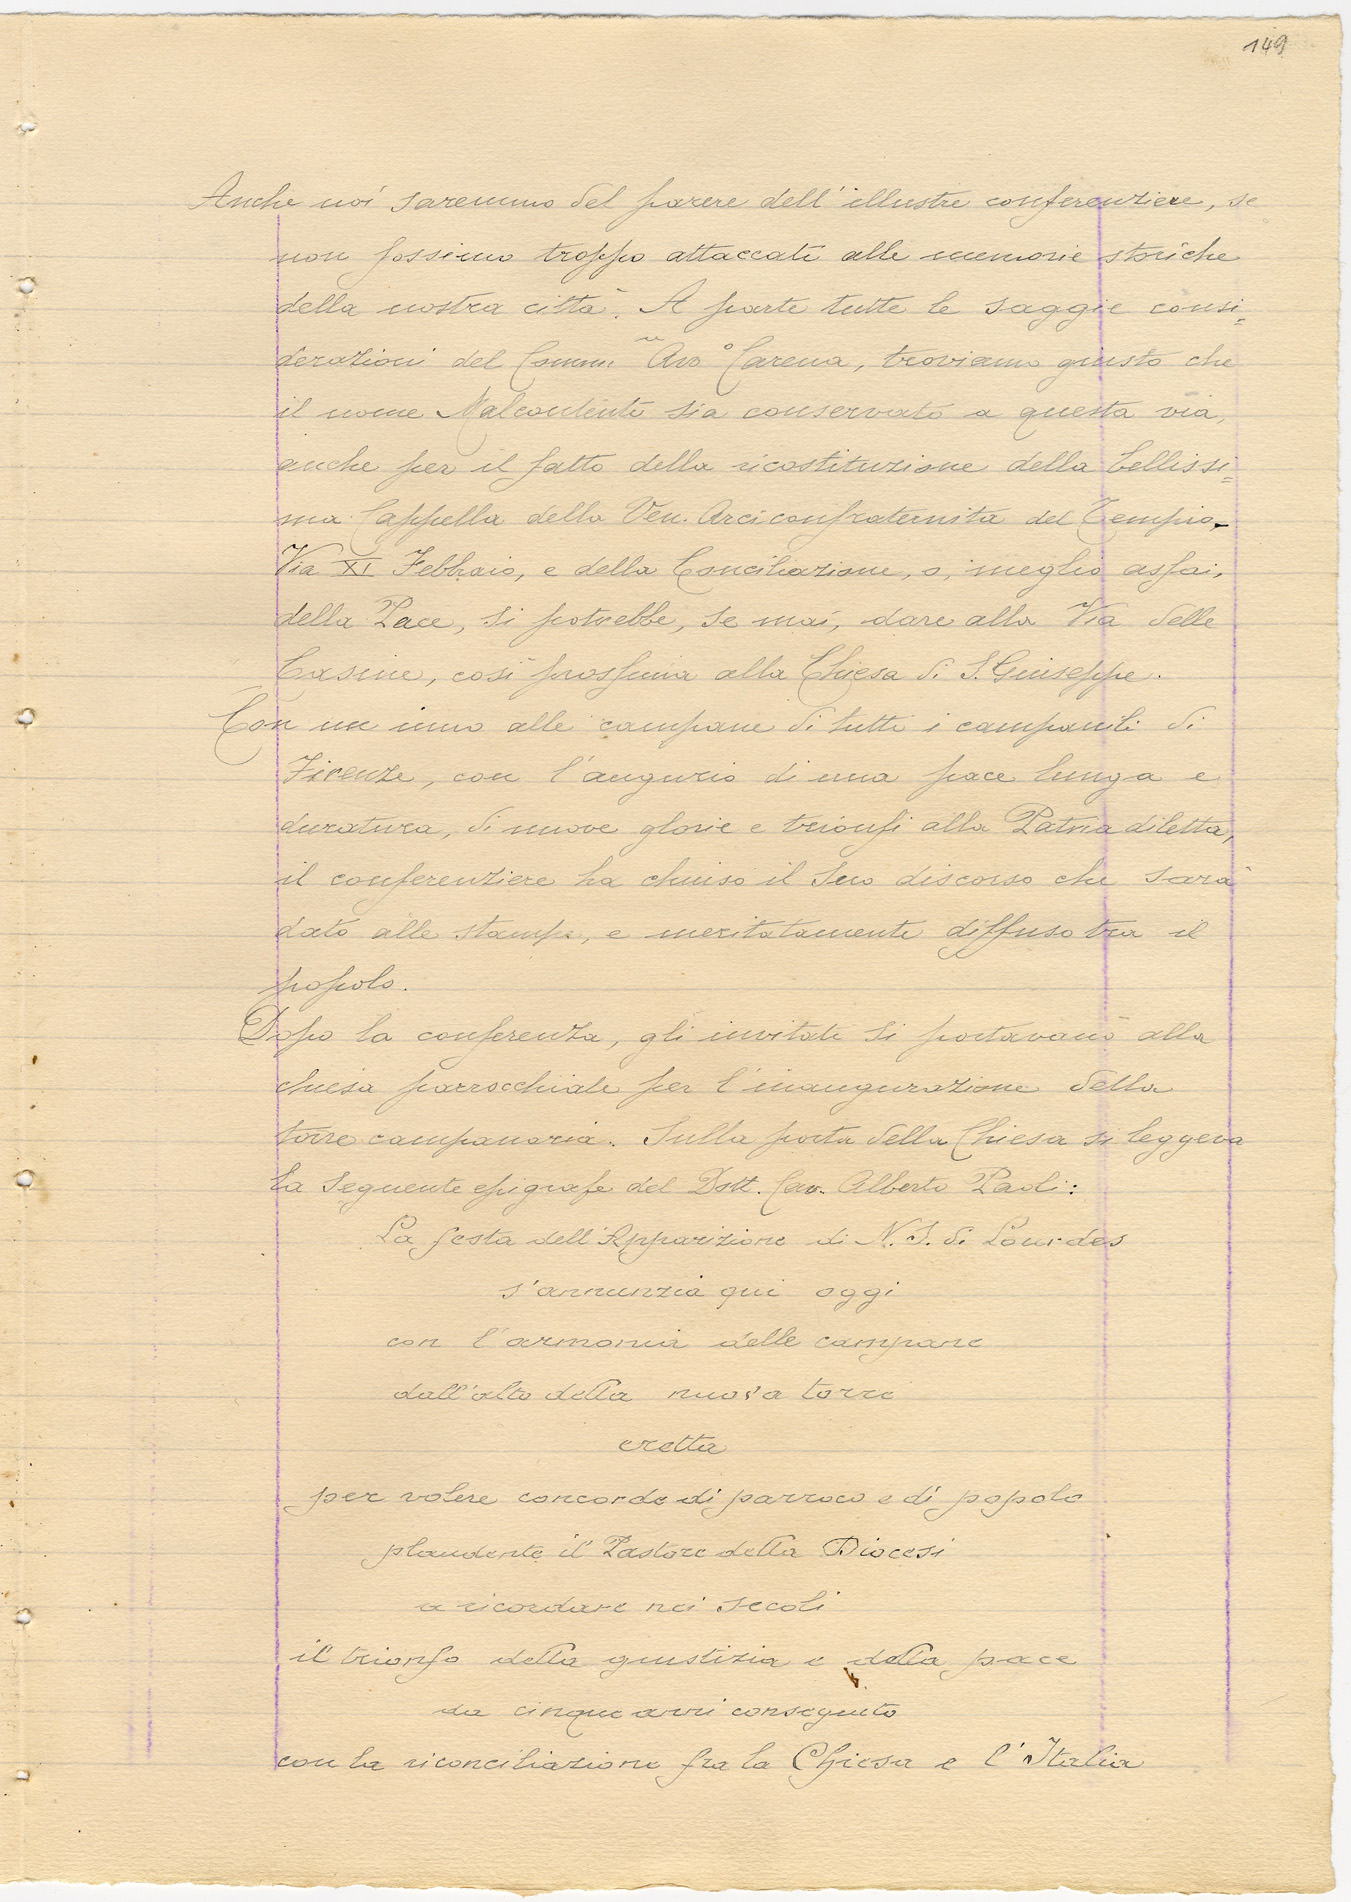 149
Anche noi saremmo del parere dell'illustre conferenziere, se
non fossimo troppo attaccati alle memorie storiche
della nostra città. A parte tutte le saggie consi=
derazioni del Comm. Avv.º Carena, troviamo giusto che
il nome Malcontenti sia conservato a questa via,
anche per il fatto della ricostituzione della bellissi=
ma Cappella della Ven. Arciconfraternita del Tempio.
Via XI Febbraio, e della Conciliazione, o, meglio assai,
della Pace, si potrebbe, se mai, dare alla Via delle
Casine, così prossima alla Chiesa di S. Giuseppe.
Con un inno alle campane di tutti i campanili di
Firenze, con l'augurio di una pace lunga e
duratura, di nuove glorie e trionfi alla Patria diletta,
il conferenziere ha chiuso il suo discorso che sarà
dato alle stampe, e meritatamente diffuso tra il
popolo.
Dopo la conferenza, gli invitati si portavano alla
chiesa parrocchiale per l'inaugurazione della
torre campanaria. Sulla porta della Chiesa si leggeva
la seguente epigrafe del Dott. Cav. Alberto Paoli:
La festa dell'Apparizione di N. S. di Lourdes
s'annunzia qui oggi
con l'armonia delle campane
dall'alto della nuova torre
eretta
per volere concorde di parroco e di popolo
plaudente il Pastore della Diocesi
a ricordare nei secoli
il trionfo della giustizia e della pace
da cinque anni conseguito
con la riconciliazione fra la Chiesa e l'Italia